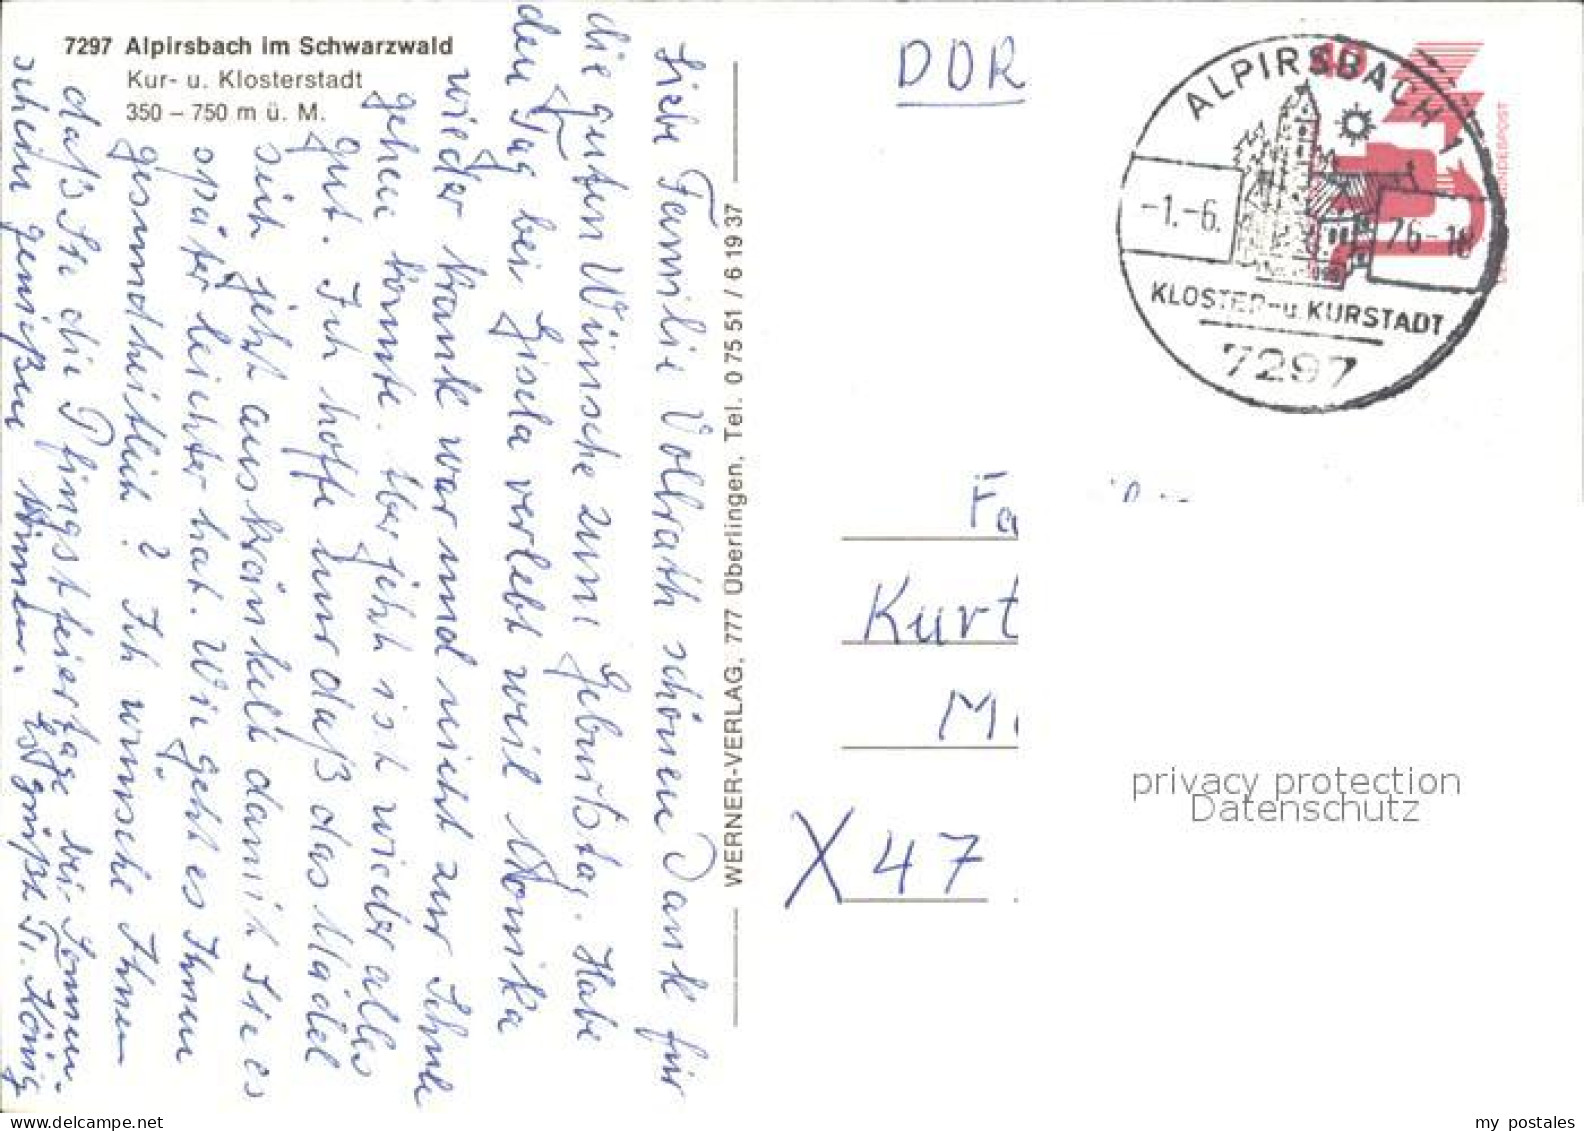 7297 Alpirsbach im Schwarzwald
Kur- u. Klosterstadt
350 – 750 m ü. M.
Liebe Familie Vollrath schönen Dank für
die guten Wünsche zum Geburtstag. Habe
den Tag bei Gisela verlebt weil Monika
wieder krank war und nicht zur Schule
gehen konnte. Aber jetzt ist wieder alles
gut. Ich hoffe nur daß das Mädel
seit jetzt auskränkelt damit Sie es
später leichter hat. Wie geht es Ihnen
gesundheitlich? Ich wünsche Ihnen
daß Sie die Pfingstfeiertage bei Sonnen-
schein genießen können. Es grüßt Fr. König
WERNER-VERLAG, 777 Überlingen, Tel. 0 75 51 / 6 19 37
DDR
ALPIRSBACH 1
-1.-6. 76-18
KLOSTER-u. KURSTADT
7297
40
BUNDESPOST
Fa
Kurt
M
X 47
privacy protection
Datenschutz
my postales